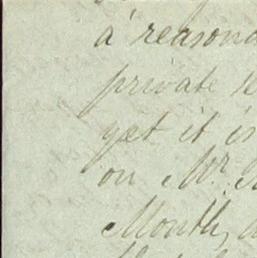 a reason
private
yet it is
on Mr.
Month,